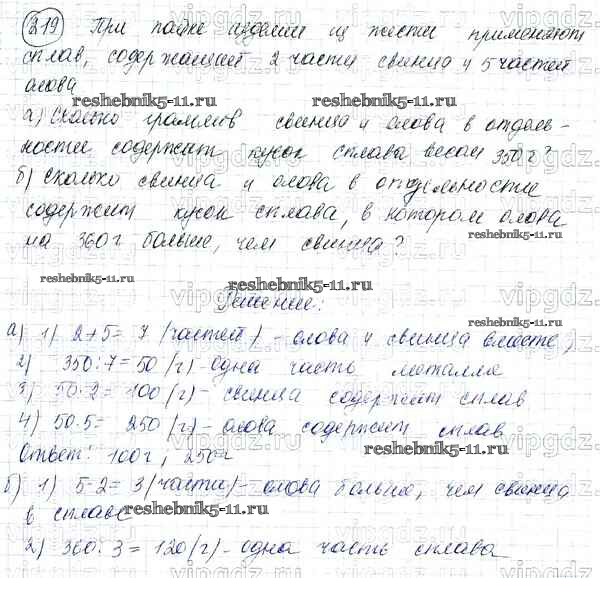 319) При пайке изделий из жести применяют
сплав, содержащий 2 части свинца и 5 частей
олова
reshebnik5-11.ru reshebnik5-11.ru
а) Сколько граммов свинца и олова в отдель-
ности содержит кусок сплава весом 350г?
б) сколько свинца и олова в отдельности
содержит кусок сплава, в котором олова
на 360г больше, чем свинца?
reshebnik5-11.ru reshebnik5-11.ru
Решение:
а) 1) 2+5=7 (частей) - олова и свинца вместе,
2) 350:7=50 (г) - одна часть металла
3) 50·2=100 (г) - свинца содержит сплав
4) 50·5=250 (г) - олова содержит сплав
Ответ: 100г, 250г
reshebnik5-11.ru
б) 1) 5-2=3 (части) - олова больше, чем свинца
в сплаве
reshebnik5-11.ru
2) 360:3=120 (г) - одна часть сплава